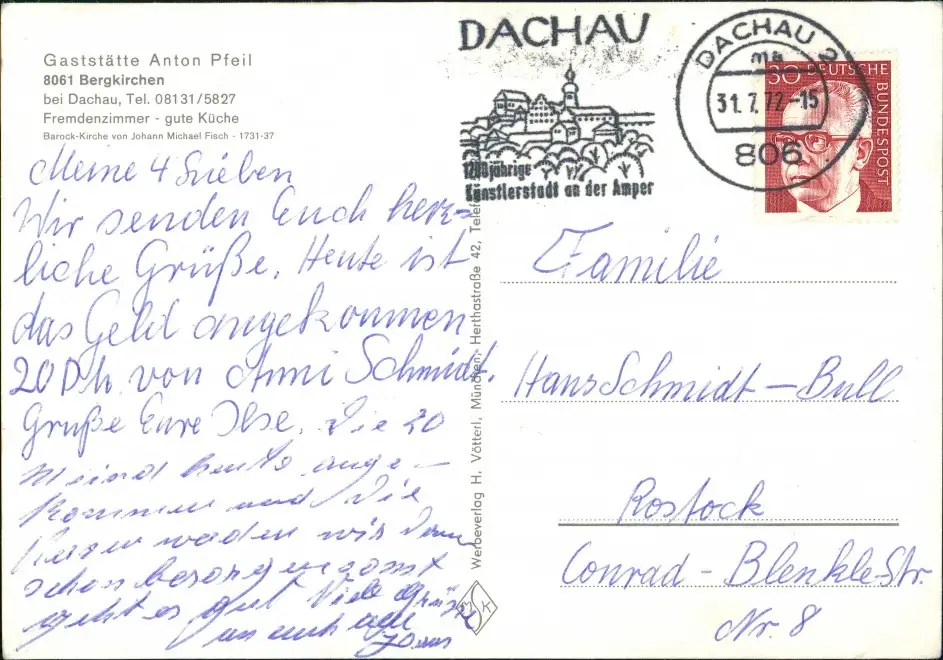 Gaststätte Anton Pfeil
8061 Bergkirchen
bei Dachau, Tel. 08131/5827
Fremdenzimmer - gute Küche
Barock-Kirche von Johann Michael Fisch - 1731-37
Meine 4 Lieben
Wir senden Euch herz-
liche Grüße. Heute ist
das Geld angekommen
20 D.M. von Anni Schmidt!
Gruße Eure Ilse. Die 20
M sind heute ange-
kommen und Die
waden wir Dann
schon besorgen sonst
geht es gut Viele Grüße
an euch alle
DACHAU
1200jährige
Künstlerstadt an der Amper
DACHAU 2
ma
31.7.72-15
806
30 DEUTSCHE
BUNDESPOST
Werbeverlag H. Vötterl, München, Herthastraße 42, Telef
M K
Familie
Hans Schmidt - Bull
Rostock
Conrad - Blenkle-Str.
Nr. 8